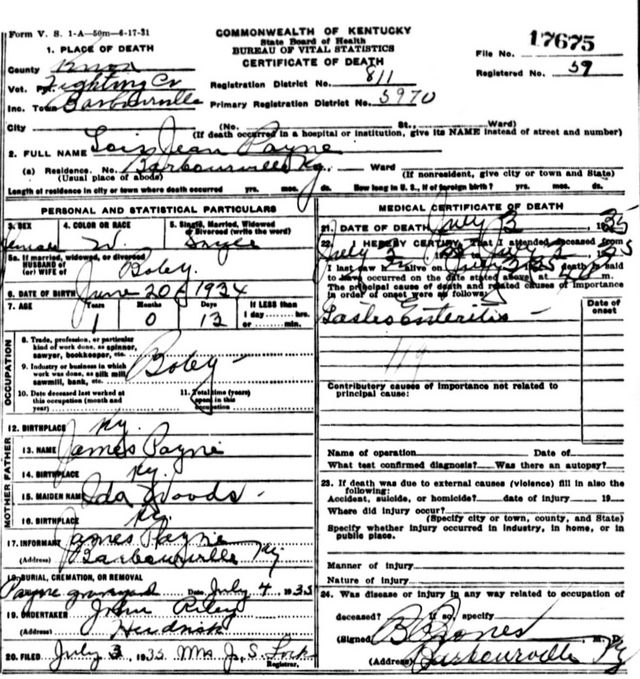 Form V. S. 1-A—50m—6-17-31
COMMONWEALTH OF KENTUCKY
State Board of Health
BUREAU OF VITAL STATISTICS
CERTIFICATE OF DEATH
File No. 17675
Registered No. 59
1. PLACE OF DEATH
County Knox
Vot. Pct. Fighting Cr
Inc. Town Barbourville
Registration District No. 811
Primary Registration District No. 5970
City (No. St., Ward)
(If death occurred in a hospital or institution, give its NAME instead of street and number)
2. FULL NAME Lois Jean Payne
(a) Residence. No. Barbourville Ky. Ward
(Usual place of abode) (If nonresident, give city or town and State)
Length of residence in city or town where death occurred yrs. mos. ds. How long in U. S., if of foreign birth? yrs. mos. ds.
PERSONAL AND STATISTICAL PARTICULARS
3. SEX
4. COLOR OR RACE
5. Single, Married, Widowed
Divorced (write the word)
Female W.
5a. If married, widowed, or divorced
HUSBAND of
(or) WIFE of
6. DATE OF BIRTH June 20 1934
7. AGE Years Months Days If LESS than
1 day hrs.
or min.
1 0 13
OCCUPATION
8. Trade, profession, or particular
kind of work done, as spinner,
sawyer, bookkeeper, etc.
9. Industry or business in which
work was done, as silk mill,
sawmill, bank, etc.
10. Date deceased last worked at
this occupation (month and
year)
11. Total time (years)
spent in this
occupation
FATHER
12. BIRTHPLACE Ky.
13. NAME James Payne
14. BIRTHPLACE Ky.
MOTHER
15. MAIDEN NAME Ida Woods
16. BIRTHPLACE Ky.
17. INFORMANT James Payne
(Address) Barbourville Ky
19. BURIAL, CREMATION, OR REMOVAL
Payne graveyard Date July 4 1935
19. UNDERTAKER John Riley
(Address)
20. FILED July 3, 1935 Mrs J. S. Lock
Registrar.
MEDICAL CERTIFICATE OF DEATH
21. DATE OF DEATH July 3, 1935
22. I HEREBY CERTIFY, That I attended deceased from
July 2
I last saw alive on death is said
to have occurred on the date stated above, at m.
The principal cause of death and related causes of importance
in order of onset were as follows:
Date of
onset
Gastro Enteritis
119
Contributory causes of importance not related to
principal cause:
Name of operation Date of
What test confirmed diagnosis? Was there an autopsy?
23. If death was due to external causes (violence) fill in also the
following:
Accident, suicide, or homicide? date of injury 19
Where did injury occur?
(Specify city or town, county, and State)
Specify whether injury occurred in industry, in home, or in
public place.
Manner of injury
Nature of injury
24. Was disease or injury in any way related to occupation of
deceased? If so, specify
(Signed) Jones M. D.
(Address) Barbourville Ky